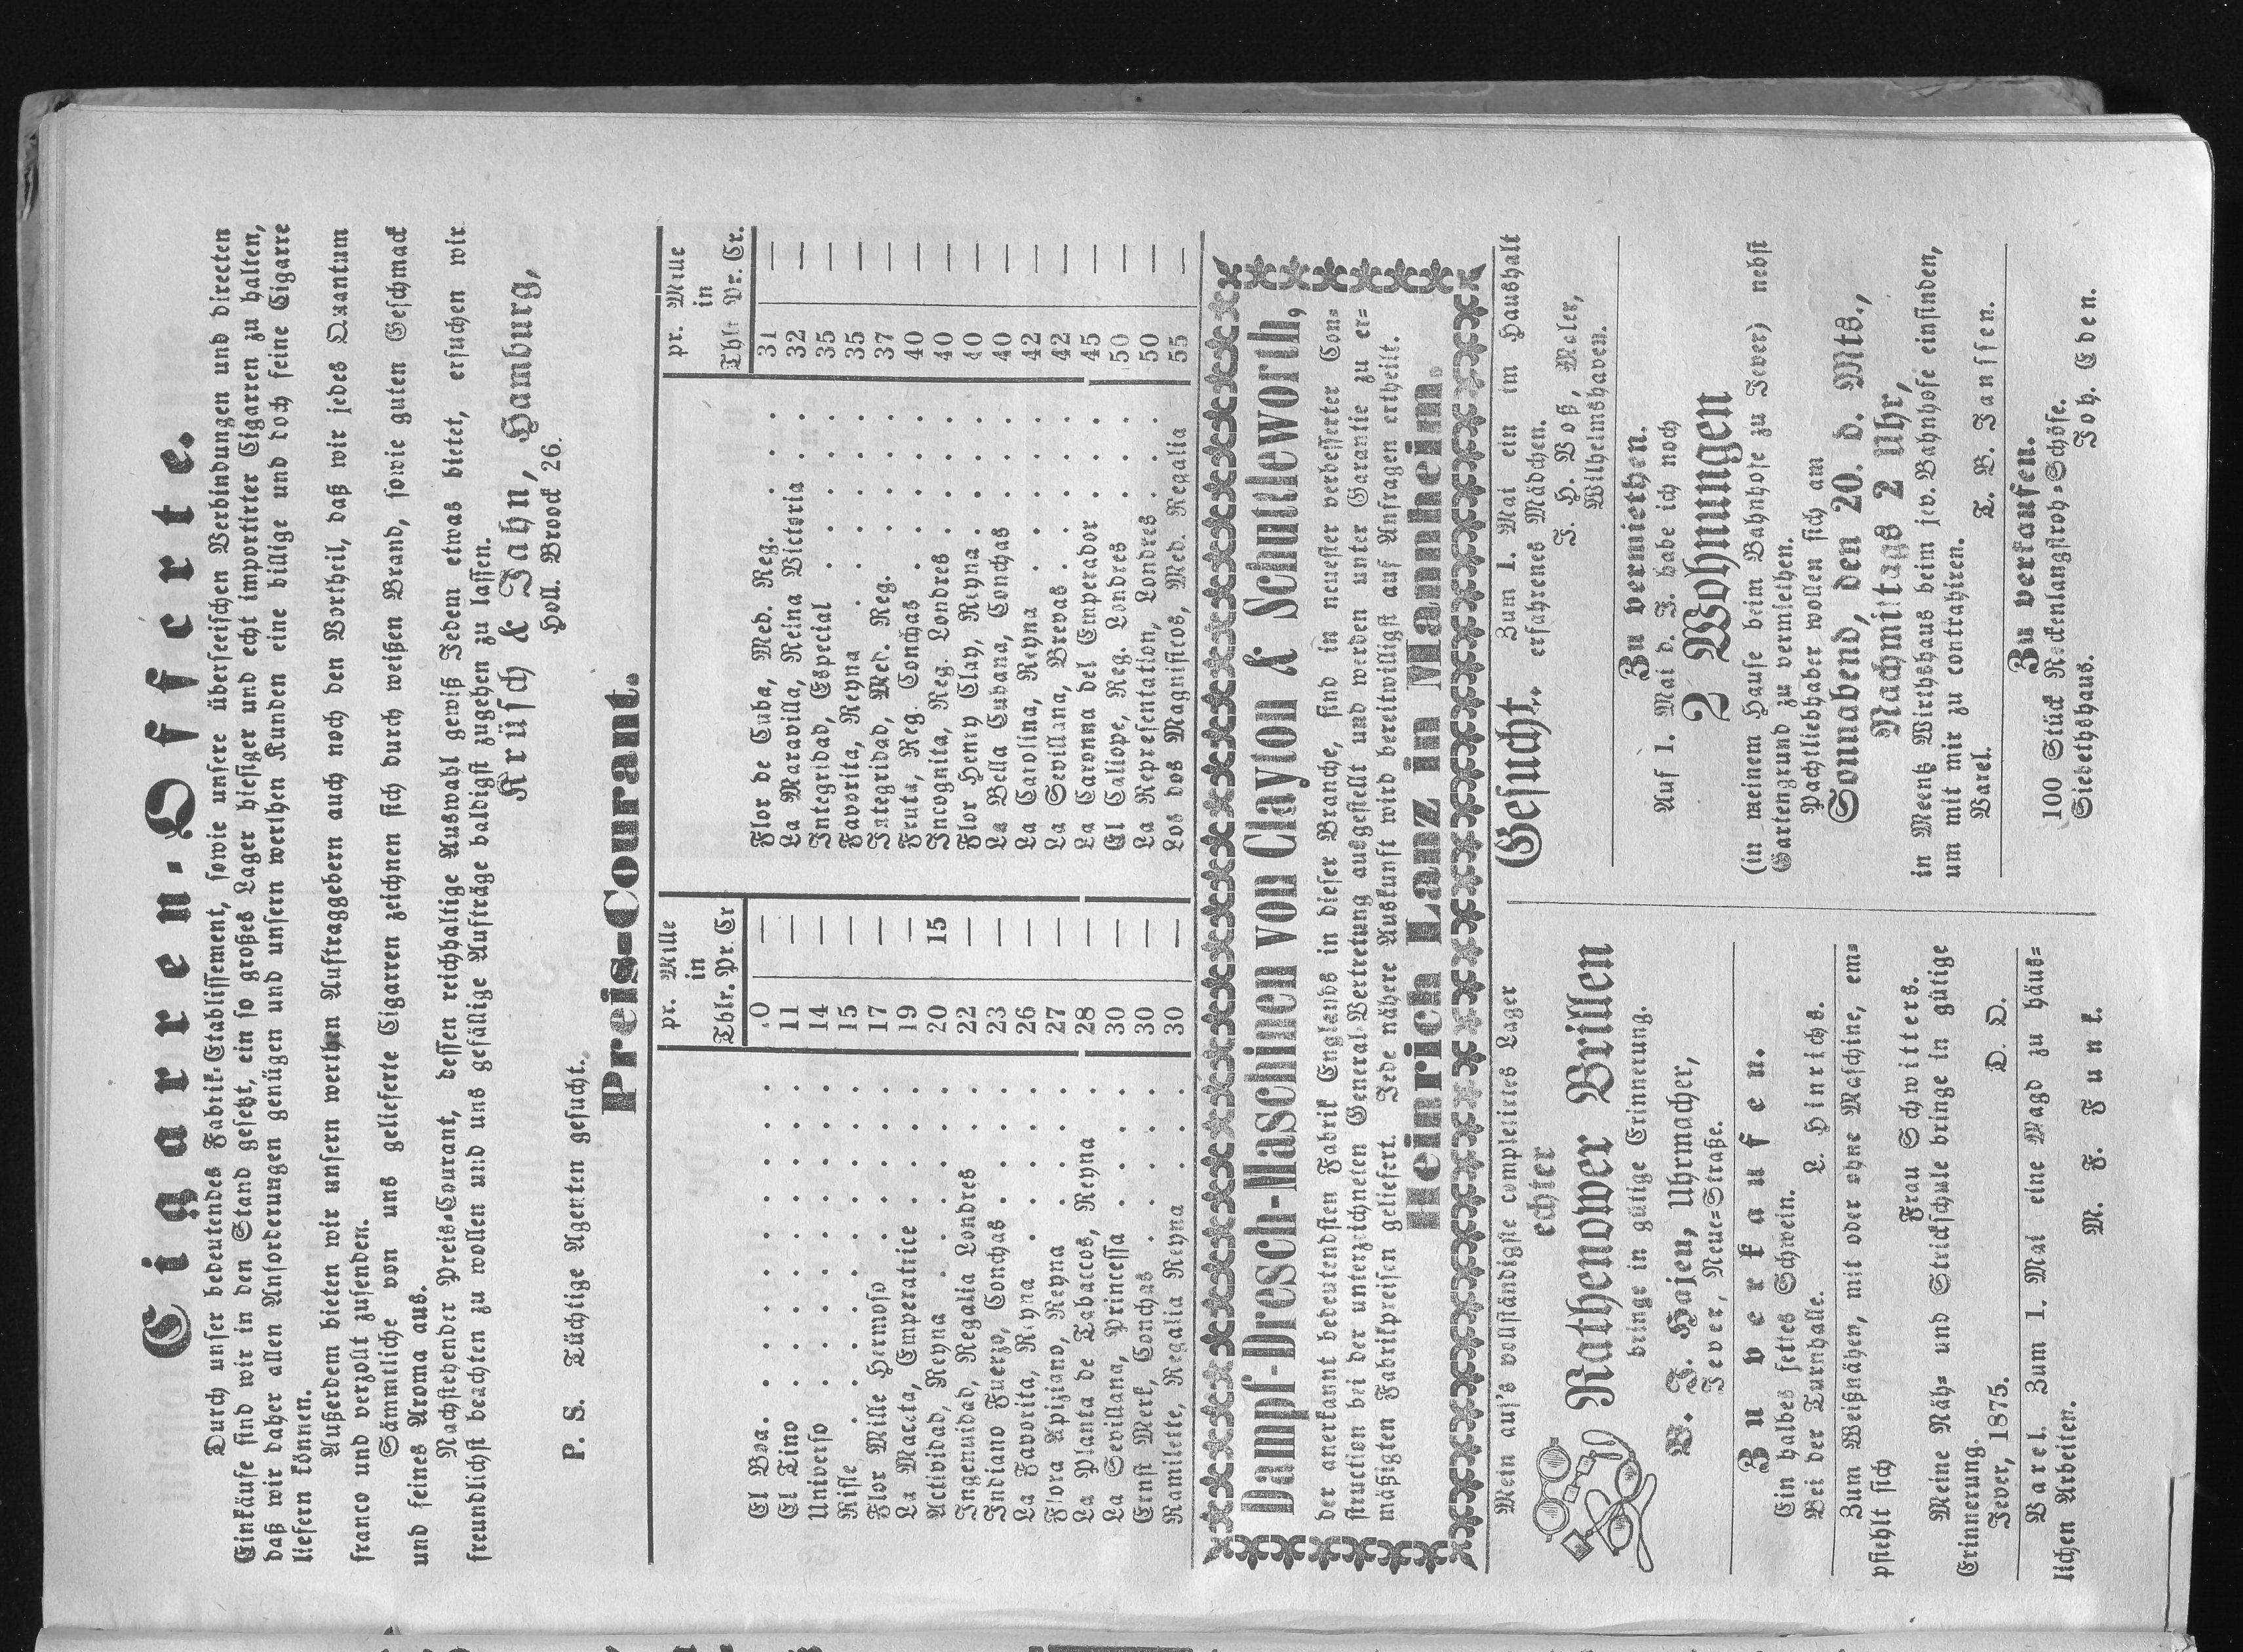 Cigarren-Offerte.
Durch unser bedeutendes Fabrik-Etablissement, sowie unsere überseeischen Verbindungen und directen
Einkäufe sind wir in den Stand gesetzt, ein so großes Lager hiesiger und echt importirter Cigarren zu halten,
daß wir daher allen Anforderungen genügen und unsern werthen Kunden eine billige und doch feine Cigarre
liefern können.
Außerdem bieten wir unsern werthen Auftraggebern auch noch den Vortheil, daß wir jedes Quantum
franco und verzollt zusenden.
Sämmtliche von uns gelieferte Cigarren zeichnen sich durch weißen Brand, sowie guten Geschmack
und feines Aroma aus.
Nachstehender Preis-Courant, dessen reichhaltige Auswahl gewiß Jedem etwas bietet, ersuchen wir
freundlichst beachten zu wollen und uns gefällige Aufträge baldigst zugehen zu lassen.
Krüsch & Jahn, Hamburg,
Holl. Broock 26.
P. S. Tüchtige Agenten gesucht.
Preis-Courant.
pr. Mille
in
Thlr. Pr. Cr
El Boa . . . . . . . . . . .0 —
El Tino . . . . . . . . . 11 —
Universo . . . . . . . . . 14 —
Rifle . . . . . . . . . . 15 —
Flor Mille Hermoso . . . . . . 17 —
La Maceta, Emperatrice . . . . 19 —
Actividad, Reyna . . . . . . 20 15
Ingenuidad, Regalia Londres . . . 22 —
Indiano Fuerzo, Conchas . . . . 23 —
La Favorita, Reyna . . . . . . 26 —
Flora Apiziano, Reyna . . . . . 27 —
La Planta de Tabaccos, Reyna . . 28 —
La Sevillana, Princessa . . . . 30 —
Ernst Merk, Conchas . . . . . 30 —
Ramilette, Regalia Reyna . . . . 30 —
pr. Mille
in
Thlr Pr. Cr.
Flor de Cuba, Med. Reg. . . . . 31 —
La Maravilla, Reina Victoria . . 32 —
Integridad, Especial . . . . . 35 —
Favorita, Reyna . . . . . . . 35 —
Integridad, Med. Reg. . . . . . 37 —
Fruta, Reg. Conchas . . . . . 40 —
Incognita, Reg. Londres . . . . 40 —
Flor Henry Clay, Reyna . . . . 40 —
La Bella Cubana, Conchas . . . 40 —
La Carolina, Reyna . . . . . 42 —
La Sevillana, Brevas . . . . . 42 —
La Caronna del Emperador . . . 45 —
El Caliope, Reg. Londres . . . 50 —
La Representation, Londres . . . 50 —
Los dos Magnificos, Med. Regalia 55 —
Dampf-Dresch-Maschinen von Clayton & Schuttleworth,
der anerkannt bedeutendsten Fabrik Englands in dieser Branche, sind in neuester verbesserter Con-
struction bei der unterzeichneten General-Vertretung aufgestellt und werden unter Garantie zu er-
mäßigten Fabrikpreisen geliefert. Jede nähere Auskunft wird bereitwilligst auf Anfragen ertheilt.
Heinrich Lanz in Mannheim.
Mein auf's vollständigste completirtes Lager
echter
Rathenower Brillen
bringe in gütige Erinnerung.
B. J. Hajen, Uhrmacher,
Jever, Neue-Straße.
Zu verkaufen.
Ein halbes fettes Schwein.
Bei der Turnhalle. L. Hinrichs.
Zum Weißnähen, mit oder ohne Maschine, em-
pfiehlt sich
Frau Schwitters.
Meine Näh- und Strickschule bringe in gütige
Erinnerung.
Jever, 1875. D. O.
Varel. Zum 1. Mai eine Magd zu häus-
lichen Arbeiten. M. F. Funk.
Gesucht. Zum 1. Mai ein im Haushalt
erfahrenes Mädchen.
J. H. Voß, Maler,
Wilhelmshaven.
Zu vermiethen.
Auf 1. Mai d. J. habe ich noch
2 Wohnungen
(in meinem Hause beim Bahnhofe zu Jever) nebst
Gartengrund zu vermiethen.
Pachtliebhaber wollen sich am
Sonnabend, den 20. d. Mts.,
Nachmittags 2 Uhr,
in Mentz Wirthshaus beim jev. Bahnhofe einfinden,
um mit mir zu contrahiren.
Varel. T. B. Janssen.
Zu verkaufen.
100 Stück Rockenlangstroh-Schöfe.
Siebethshaus. Joh. Eden.